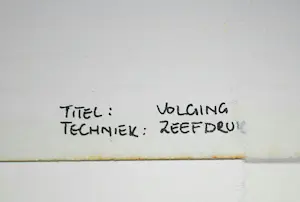 TITEL: VOLGING
TECHNIEK: ZEEFDRUK